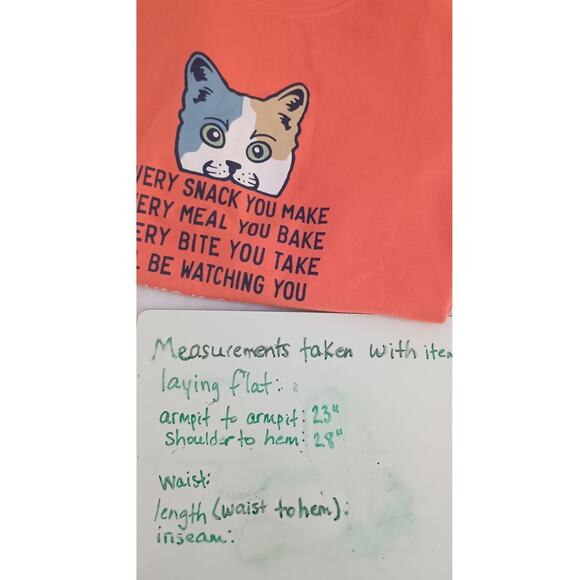 VERY SNACK YOU MAKE
ERY MEAL YOU BAKE
ERY BITE YOU TAKE
L BE WATCHING YOU
Measurements taken with item
laying flat:
armpit to armpit: 23"
shoulder to hem: 28"
waist:
length (waist to hem):
inseam: